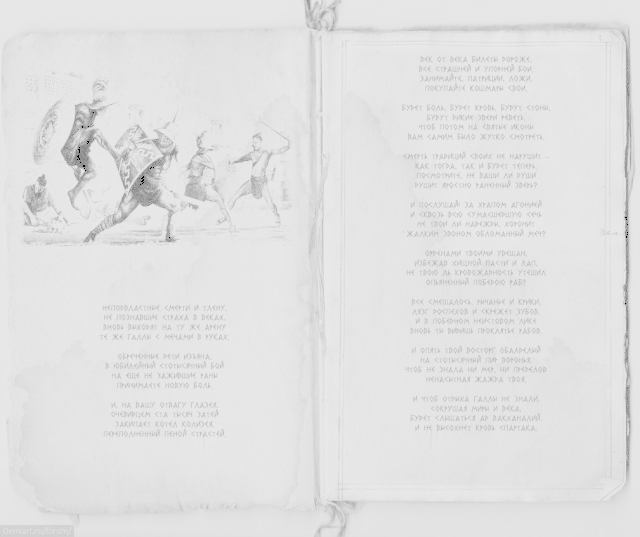 НЕПОДВЛАСТНЫЕ СМЕРТИ И ТЛЕНУ,
НЕ ПОЗНАВШИЕ СТРАХА В ВЕКАХ,
ВНОВЬ ВЫХОДЯТ НА ТУ ЖЕ АРЕНУ
ТЕ ЖЕ ГАЛЛЫ С МЕЧАМИ В РУКАХ.
ОБРЕЧЕННЫЕ ДЕТИ ИЗЪЯНА,
В ЮБИЛЕЙНЫЙ СТОТЫСЯЧНЫЙ БОЙ
НА ЕЩЕ НЕ ЗАЖИВШИЕ РАНЫ
ПРИНИМАЕТЕ НОВУЮ БОЛЬ.
И, НА ВАШУ ОТВАГУ ГЛАЗЕЯ,
ОЧЕВИДЦЕМ СТА ТЫСЯЧ ЗАТЕЙ
ЗАКИПАЕТ КОТЕЛ КОЛИЗЕЯ,
ПЕРЕПОЛНЕННЫЙ ПЕНОЙ СТРАСТЕЙ.
ВЕК ОТ ВЕКА БИЛЕТЫ ДОРОЖЕ,
ВСЕ СТРАШНЕЙ И УПОРНЕЙ БОИ.
ЗАНИМАЙТЕ, ПАТРИЦИИ, ЛОЖИ,
ПОКУПАЙТЕ КОШМАРЫ СВОИ.
БУДЕТ БОЛЬ, БУДЕТ КРОВЬ, БУДУТ СТОНЫ,
БУДУТ ДИКИЕ ЗВЕРИ РЕВЕТЬ,
ЧТОБ ПОТОМ НА СВЯТЫЕ ИКОНЫ
ВАМ САМИМ БЫЛО ЖУТКО СМОТРЕТЬ.
СМЕРТЬ ТРАДИЦИЙ СВОИХ НЕ НАРУШИТ -
КАК ТОГДА, ТАК И БУДЕТ ТЕПЕРЬ,
ПОСМОТРИТЕ, НЕ ВАШИ ЛИ ДУШИ
ДУШИТ ЯРОСТНО РАНЕННЫЙ ЗВЕРЬ?
И ПОСЛУШАЙ: ЗА ХРАПОМ АГОНИЙ
И СКВОЗЬ ВСЮ СУМАСШЕДШУЮ СЕЧЬ
НЕ ТВОИ ЛИ НАДЕЖДЫ ХОРОНИТ
ЖАЛКИМ ЗВОНОМ ОБЛОМАННЫЙ МЕЧ?
ОРДЕНАМИ ТВОИМИ УВЕШАН,
ИЗБЕЖАВ ХИЩНОЙ ПАСТИ И ЛАП,
НЕ ТВОЮ ЛЬ КРОВОЖАДНОСТЬ УТЕШИЛ
ОПЬЯНЕННЫЙ ПОБЕДОЮ РАБ?
ВСЕ СМЕШАЛОСЬ, РЫЧАНЬЕ И КРИКИ,
ЛЯЗГ ДОСПЕХОВ И СКРЕЖЕТ ЗУБОВ,
И В ПОБЕДНОМ НЕИСТОВОМ ЛИКЕ
ВНОВЬ ТЫ ВИДИШЬ ПРОКЛЯТЬЕ РАБОВ.
И ОПЯТЬ ТВОЙ ВОСТОРГ ОБАЛДЕЛЫЙ
НА СТОТЫСЯЧНЫЙ ПИР ВОРОНЬЯ,
ЧТОБ НЕ ЗНАЛА НИ МЕР, НИ ПРЕДЕЛОВ
НЕНАСЫТНАЯ ЖАЖДА ТВОЯ.
И ЧТОБ ОТДЫХА ГАЛЛЫ НЕ ЗНАЛИ,
СОКРУШАЯ МИРЫ И ВЕКА,
БУДЕТ СЛЫШАТЬСЯ АД ВАКХАНАЛИЙ,
И НЕ ВЫСОХНЕТ КРОВЬ СПАРТАКА.